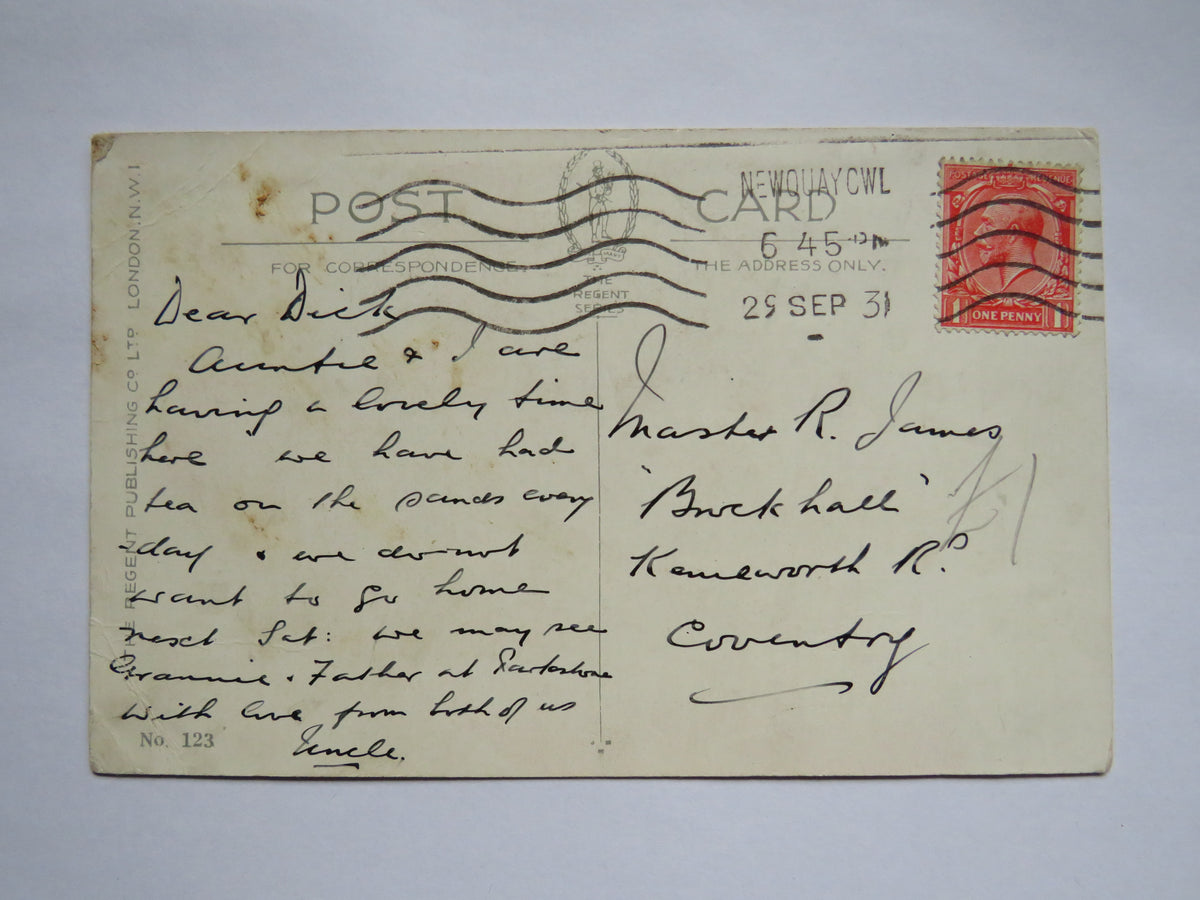 POST CARD
FOR CORRESPONDENCE. THE ADDRESS ONLY.
THE
REGENT
SERIES
NEWQUAY CWL
6 45 PM
29 SEP 31
POSTAGE REVENUE
1 ONE PENNY 1
THE REGENT PUBLISHING CO LTD LONDON. N.W.1
Dear Dick
Auntie & I are
having a lovely time
here we have had
tea on the sands every
-day & we do not
want to go home
next Sat: we may see
Grannie & Father at Parkstone
with love from both of us
Uncle.
No. 123
Master R. James
"Brockhall"
Kenilworth Rd
Coventry